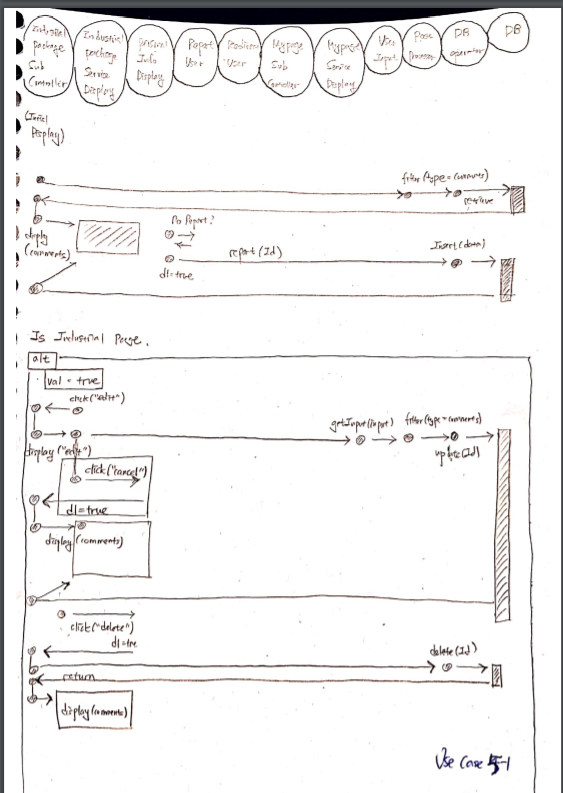 Industrial
package
Sub
Controller
Industrial
package
Service
Display
Personal
Info
Display
Report
User
User
Mypage
Sub
Controller
Mypage
Service
Display
User
Input
Processor
DB
operator
DB
(Initial
Display)
filter(type=comments)
retrieve
Do Report?
display
(comments)
report(Id)
Insert(data)
dl=true
Is Industrial Page.
alt
val = true
click("edit")
getInput(input)
filter(type=comments)
display("edit")
update(Id)
click("cancel")
dl=true
display(comments)
click("delete")
dl=true
delete(Id)
return
display(comments)
Use Case 5-1